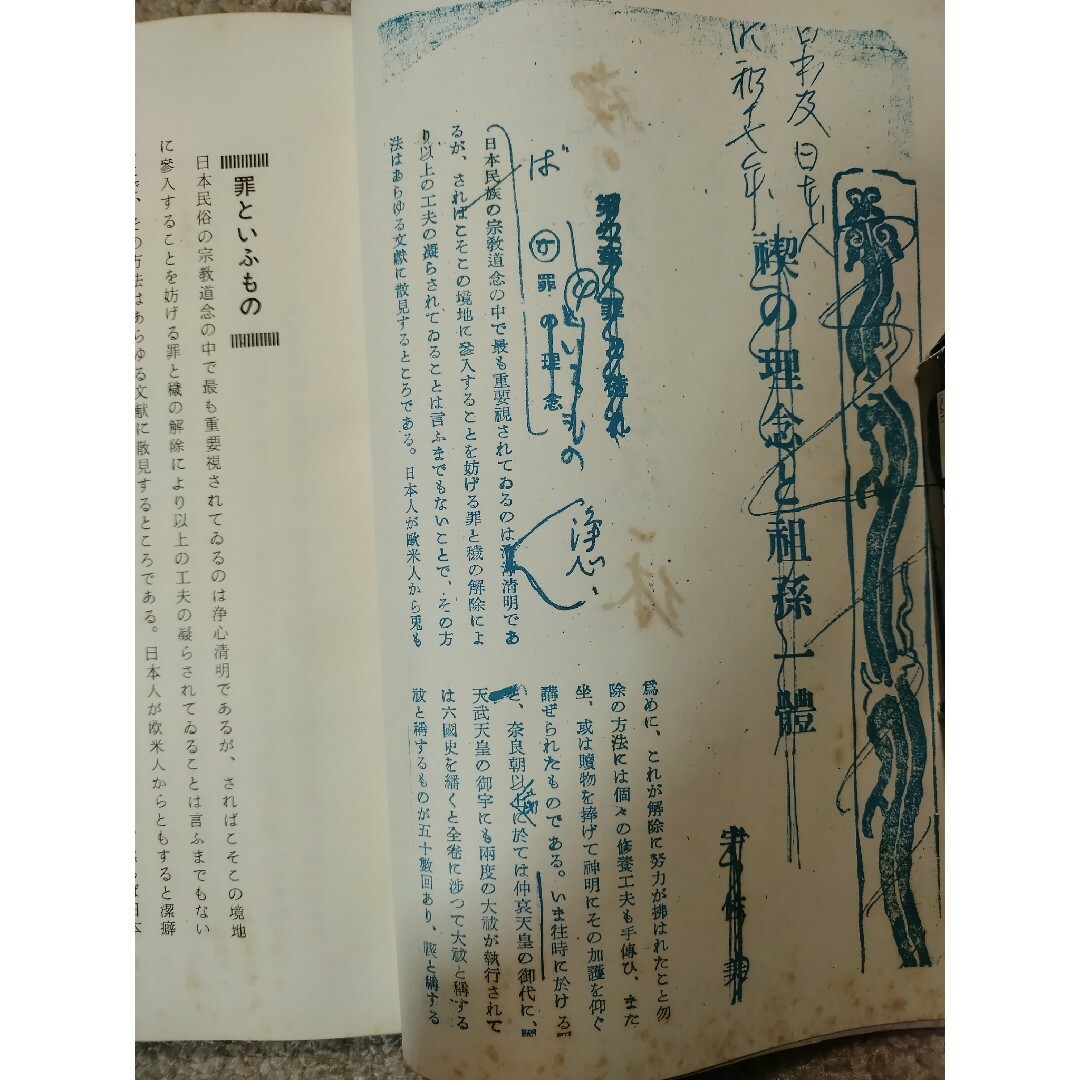 日本及日本人
昭和十七年
禊の理念と祖孫一體
罪の理念
といふもの
浄心
ば
日本民族の宗教道念の中で最も重要視されてゐるのは清明であ
るが、さればこそこの境地に參入することを妨げる罪と穢の解除によ
り以上の工夫の凝らされてゐることは言ふまでもないことで、その方
法はあらゆる文獻に散見するところである。日本人が歐米人から兎も
爲めに、これが解除に努力が拂はれたこと勿
除の方法には個々の修養工夫も手傳ひ、また
坐、或は贖物を捧げて神明にその加護を仰ぐ
講ぜられたものである。いま往時に於ける
奈良朝以前に於ては仲哀天皇の御代に、
天武天皇の御宇にも兩度の大祓が執行されて
は六國史を繙くと全卷に涉つて大祓と稱する
祓と稱するものが五十數回あり、禊と稱する
罪といふもの
日本民俗の宗教道念の中で最も重要視されてゐるのは浄心清明であるが、さればこそこの境地
に參入することを妨げる罪と穢の解除により以上の工夫の凝らされてゐることは言ふまでもない
ことで、その方法はあらゆる文獻に散見するところである。日本人が欧米人からともすると潔癖